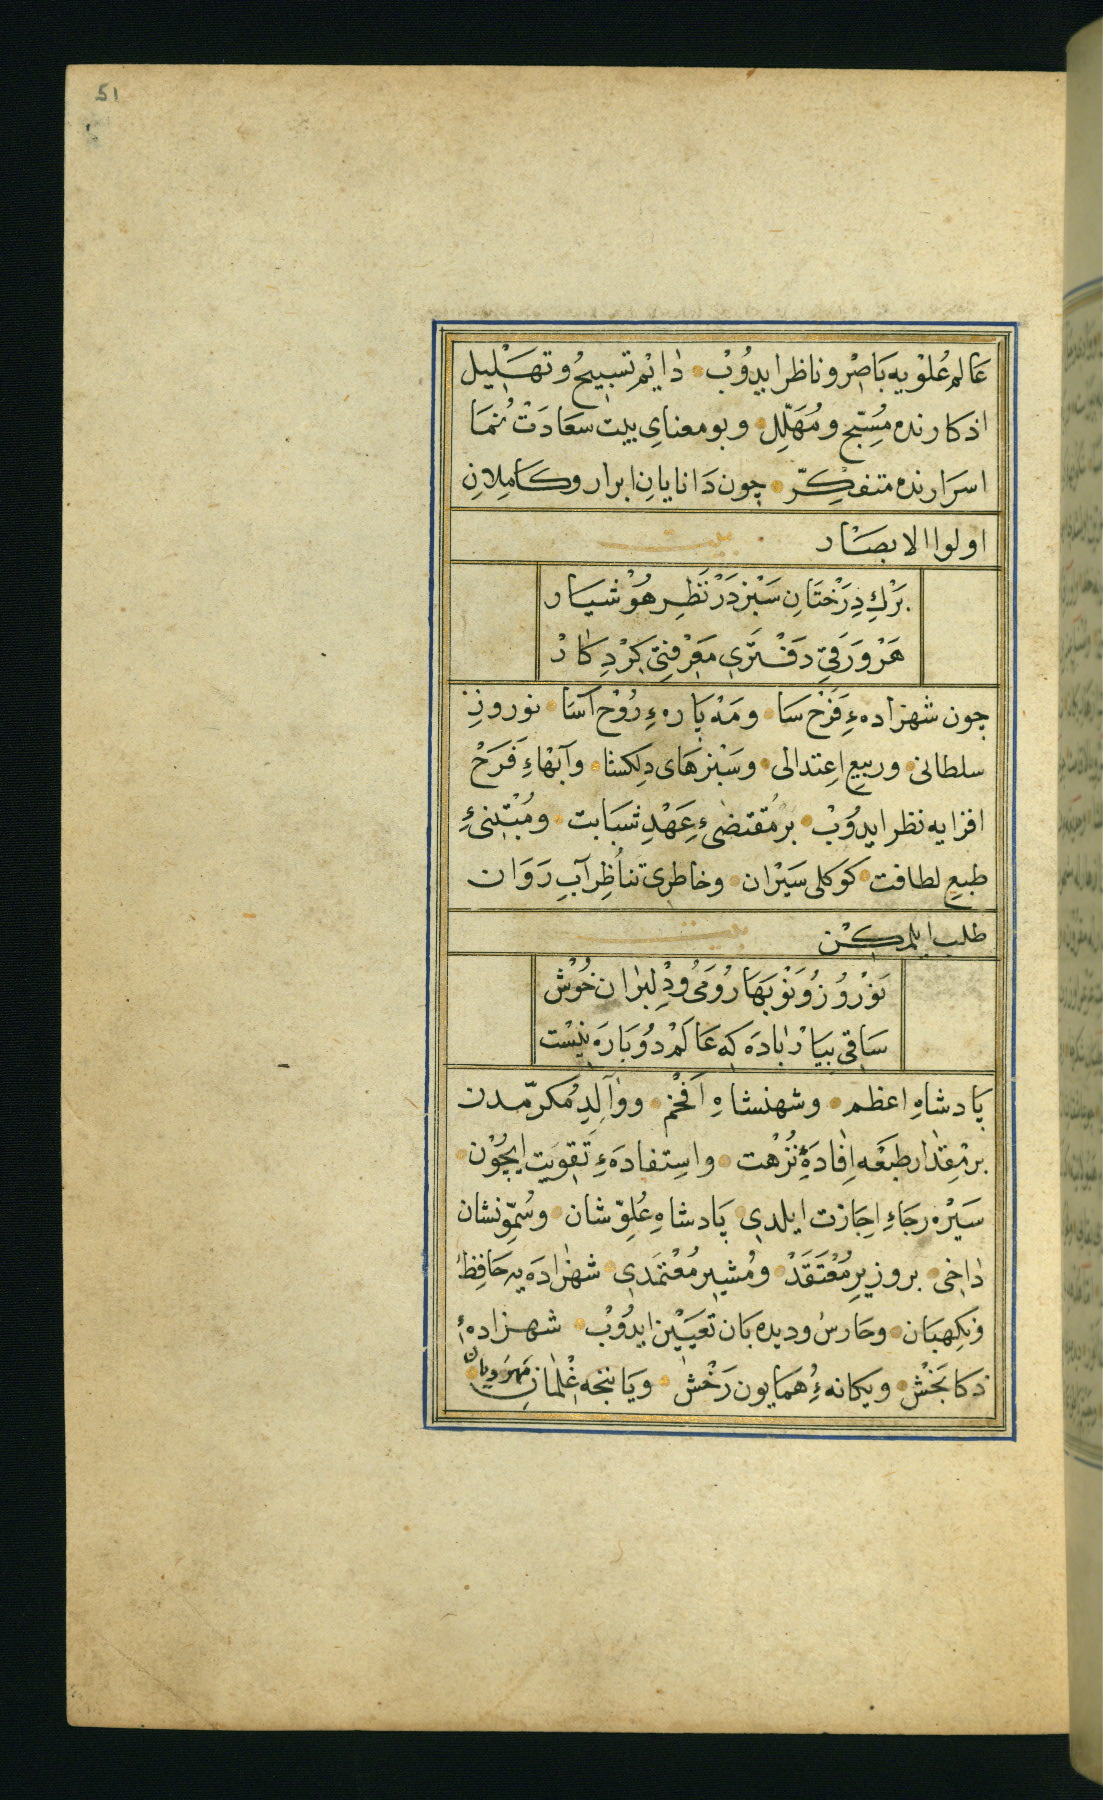 51
عَالم عُلوْیه بَاصِرْ و ناظر ایدُوبْ دٰایِم تسبیحُ و تهَلِیل
اذکارنده مُسَبّح و مُهَلِّل و بو معنایِ بیت سعَادَتْ نُمَا
اسرَارنده متفکِّر چون دَانایانِ ابرار و کَامِلانِ
اولوا الابصَار بیت
بَرْكِ دِرَخْتَانِ سَبْز دَرْ نَظَرِ هُوْشیَار
هَرْ وَرَقیٖ دَفْتَرَیٖ مَعْرِفَتِ کِرْدِکَارْ
چون شهزادهءِ فَرَحْ سَا و مَهْ پَارهءِ رُوْح آسَا نوروزِ
سلطانی و ربیعِ اِعتدالی و سَبْزهَای دِلکشا و آبْهاءِ فَرَحْ
افزایه نظر ایدُوبْ بَر مُقتضٰیءِ عَهْدِ شَبَابت و مُبْتَنیءِ
طبعِ لطافت کوکلی سَیْران و خاطری تناظُرِ آبِ رَوَان
طلب ایلرکَنْ بیت
نَوْرُوزُ و نَوْ بَهَارُ و مَیُ و دِلبَران خُوْش
سَاقی بِیَارْ بَادَه کِه عَالَمْ دُوبَارَه نِیْست
پَادشَاهِ اعظم و شهنشَاهِ اَفْخَم و وٰالِدِ مُکرّمدن
بر مِقدٰار طبعَه اِفادَهٴِ نُزْهت و اسِتفادَهءِ تَقوِیَت ایچُوْن
سَیْره رجَاءِ اِجَازت ایلدی پَادشاهِ عُلِوّ شان و سُمِّو نشان
دٰاخی بر وزیرِ مُعْتَقَدْ و مُشِیر مُعْتَمَدی شهزٰادَه یه حَافِظ
و نکِهبَان و حَارسُ و دیده بَان تعیَیْن ایدُوبْ شهزادهٴ
ذکا بَخْشْ و یکانهءِ هُمَایون رَخْش و یانجه غْلمَانِ مَهرُویان